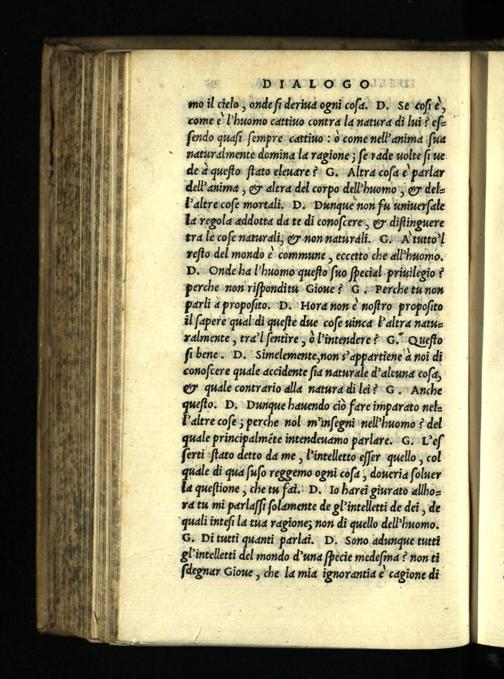 DIALOGO
mo il cielo, onde si deriva ogni cosa. D. Se cosi è,
come è l'huomo cattivo contra la natura di lui? es-
sendo quasi sempre cattivo: ò come nell'anima sua
naturalmente domina la ragione; se rade uolte si ue
de à questo stato elevare? G. Altra cosa è parlar
dell'anima, & altra del corpo dell'huomo, & del-
l'altre cose mortali. D. Dunque non fu universale
la regola addotta da te di conoscere, & distinguere
tra le cose naturali, & non naturali. G. A tutto'l
resto del mondo è commune, eccetto che all'huomo.
D. Onde ha l'huomo questo suo special privilegio?
perche non rispondi tu Giove? G. Perche tu non
parli à proposito. D. Hora non è nostro proposito
il sapere qual di queste due cose uinca l'altra natu-
ralmente, tra'l sentire, ò l'intendere? G. Questo
si bene. D. Simelemente, non s'appartiene à noi di
conoscere quale accidente sia naturale d'alcuna cosa,
& quale contrario alla natura di lei? G. Anche
questo. D. Dunque havendo ciò fare imparato nel-
l'altre cose; perche nol m'insegni nell'huomo? del
quale principalmēte intendevamo parlare. G. L'es
serti stato detto da me, l'intelletto esser quello, col
quale di qua suso reggemo ogni cosa, doveria soluer
la questione, che tu fai. D. Io harei giurato allho-
ra tu mi parlassi solamente de gl'intelletti de dei, de
quali intesi la tua ragione; non di quello dell'huomo.
G. Di tutti quanti parlai. D. Sono adunque tutti
gl'intelletti del mondo d'una specie medesma? non ti
sdegnar Giove, che la mia ignorantia è cagione di